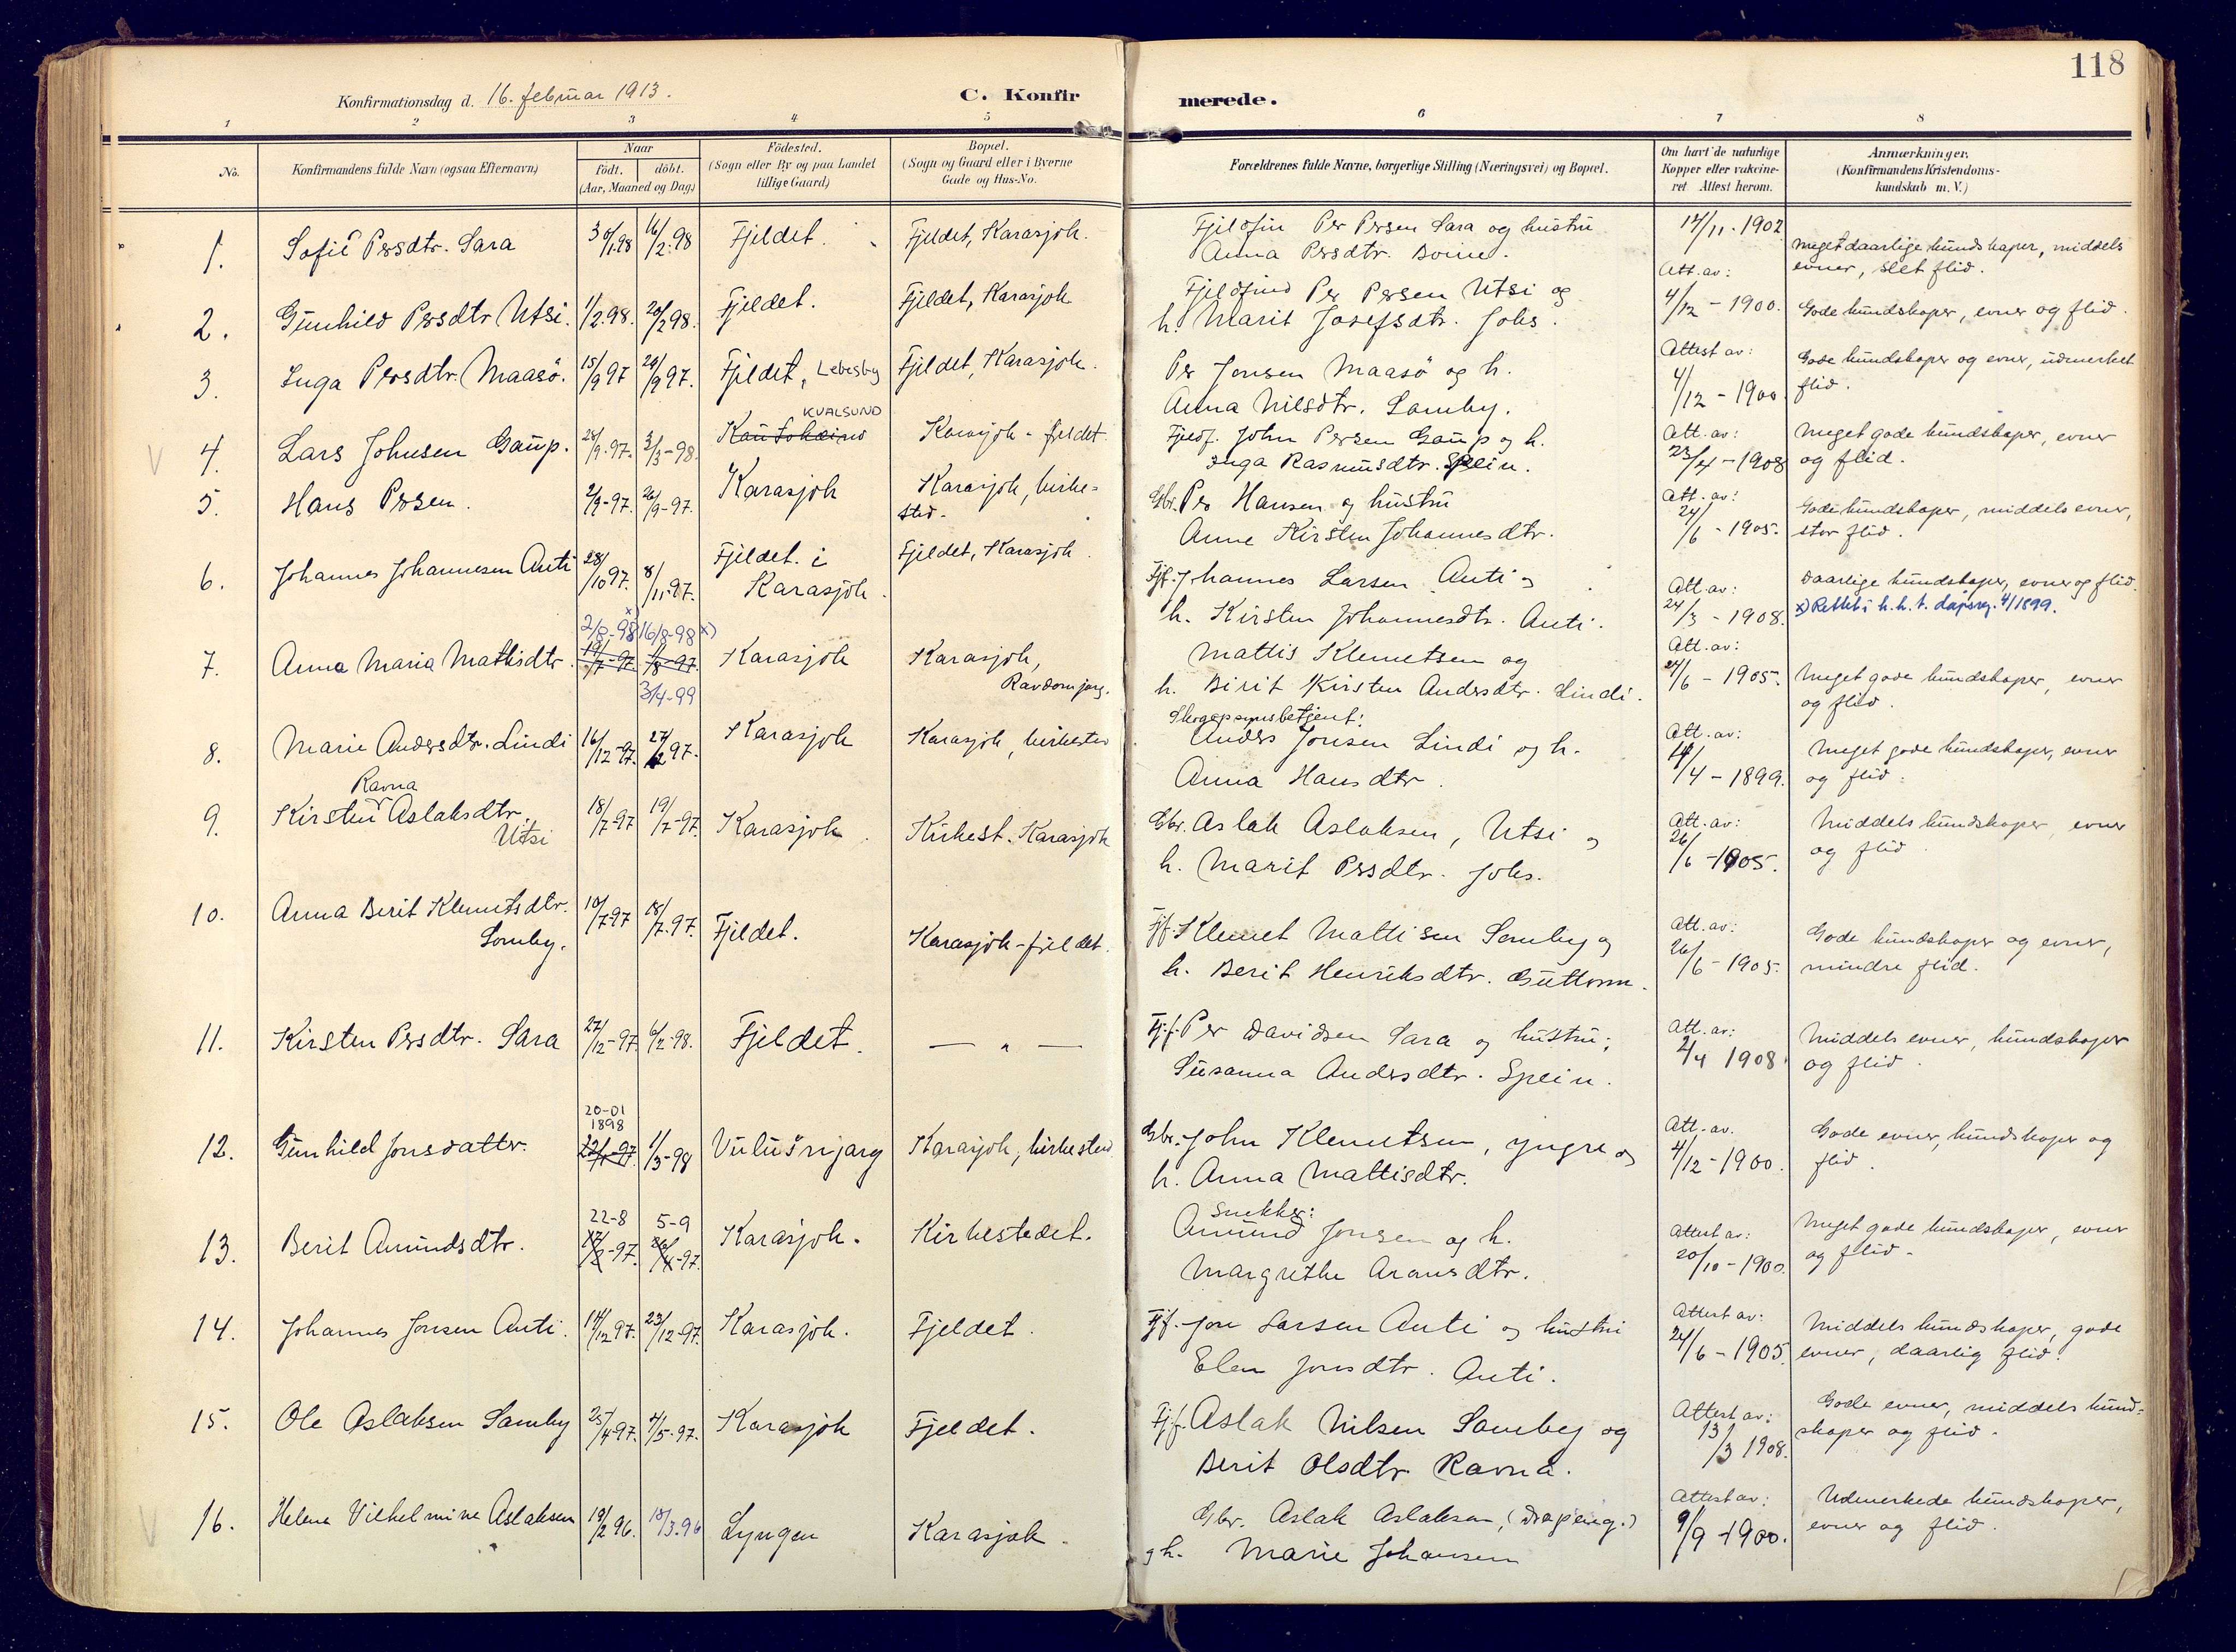 118
Konfirmationsdag d. 16. februar 1913.
C. Konfirmerede.
1 2 3 4 5 6 7 8
No.
Konfirmandens fulde Navn (ogsaa Efternavn)
Naar
födt. döbt.
(Aar, Maaned og Dag.)
Födested.
(Sogn eller By og paa Landet
tillige Gaard.)
Bopæl.
(Sogn og Gaard eller i Byerne
Gade og Hus-No.
Forældrenes fulde Navne, borgerlige Stilling (Næringsvei) og Bopæl.
Om havt de naturlige
Kopper eller vakcine-
ret Attest herom.
Anmærkninger.
(Konfirmandens Kristendoms-
kundskab m. V.)
1. Sofie Persdtr. Sara 30/1.98 16/2.98 Fjeldet. Fjeldet, Karasjok. Fjeldfin Per Persen Sara og hustru 17/11.1902
Anna Persdtr. Boine. meget daarlige kundskaper, middels
evner, slet flid.
2. Gunhild Persdtr Utsi. 1/2.98. 20/2 98. Fjeldet. Fjeldet, Karasjok Fjeldfind Per Persen Utsi og Att. av:
h. Marit Josefsdtr. Johs. 4/12 - 1900. Gode kundskaper, evner og flid.
3. Inga Persdtr. Maasö. 15/9 97 26/9 97. Fjeldet, Lebesby Fjeldet, Karasjok. Per Jonsen Maasö og h. Attest av: Gode kundskaper og evner, udmerket
Anna Nilsdtr. Somby. 4/12 - 1900 flid.
KVALSUND
4. Lars Johnsen Gaup. 28/9.97. 3/3-98. Kautokeino Karasjok - fjeldet Fjeldf. John Persen Gaup og h. Att. av: Meget gode kundskaper, evner
Inga Rasmusdtr. Spein. 23/4-1908 og flid.
5. Hans Persen. 2/9-97. 26/9-97. Karasjok Karasjok, kirke-
sted. Gbr. Per Hansen og hustru Att. av: Gode kundskaper, middels evner,
Anne Kirsten Johannesdtr. 24/6 - 1905. stor flid.
6. Johannes Johannesen Anti 28/10 97. 8/11.97. Fjeldet. i
Karasjok. Fjeldet, Karasjok. Fjf. Johannes Larsen Anti og Att. av: Daarlige kundskaper, evner og flid.
h. Kirsten Johannesdtr. Anti. 24/3 - 1908. x) Rettet i h. h. t. dåpsreg. 4/1899.
2/8-98 x) 16/8-98 x)
7. Anna Maria Mattisdtr. 19/7-97. 1/8-97. Karasjok Karasjok, Mattis Klemetsen og Att. av:
3/4-99 Ravdomjarg. h. Birit Kirsten Andersdtr. Lindi. 24/6 - 1905. Meget gode kundskaper, evner
og flid.
Skogopsynsbetjent:
8. Marie Andersdtr. Lindi 16/12-97. 27/12 97. Karasjok Karasjok, kirkested Anders Jonsen Lindi og h. Att. av: Meget gode kundskaper, evner
Anna Hansdtr. 4/4 - 1899. og flid.
Ravna
9. Kirsten Aslaksdtr. 18/7-97 19/7-97. Karasjok. Kirkest. Karasjok Gbr. Aslak Aslaksen, Utsi og Att. av: Middels kundskaper, evner
Utsi h. Marit Persdtr. Johs. 26/6 - 1905. og flid.
10. Anna Berit Klemetsdtr. 10/7.97 18/7.97. Fjeldet. Karasjok-fjeldet. Fjf. Klemet Mattisen Somby og Att. av: Gode kundskaper og evner,
Somby. h. Berit Henriksdtr. Guttorm. 26/6 - 1905. mindre flid.
11. Kirsten Persdtr. Sara 27/12-97. 6/2-98. Fjeldet. — " — Fjf. Per Davidsen Sara og hustru; Att. av: Middels evner, kundskaper
Susanna Andersdtr. Spein. 2/4 1908. og flid.
20-01
1898
12. Gunhild Jonsdatter. 22/1-97. 1/3-98 Vulušnjarg Karasjok, kirkested Gbr. John Klemetsen, yngre og Att. av. Gode evner, kundskaper og
h. Anna Mattisdtr. 4/12 - 1900. flid.
22-8 5-9 Snekker:
13. Berit Amundsdtr. -97. -97. Karasjok. Kirkestedet. Amund Jonsen og h. Attest av: Meget gode kundskaper, evner
Margrethe Aronsdtr. 20/10 - 1900. og flid.
14. Johannes Jonsen Anti. 14/12 97. 23/12-97. Karasjok. Fjeldet. Fjf. Jon Larsen Anti og hustru Attest av: Middels kundskaper, gode
Elen Jonsdtr. Anti. 24/6 - 1905. evner, daarlig flid.
15. Ole Aslaksen Somby 25/4-97. 4/5-97. Karasjok Fjeldet. Fjf. Aslak Nilsen Somby og Attest av: Gode evner, middels kund-
Berit Olsdtr Ravna. 13/3 1908. skaper og flid.
16. Helena Vilhelmine Aslaksen 19/2 96. 18/3.96 Lyngen Karasjok. Gbr. Aslak Aslaksen, Attest av: Udmerkede kundskaper,
og h. Marie Johansen 9/9 - 1900. evner og flid.